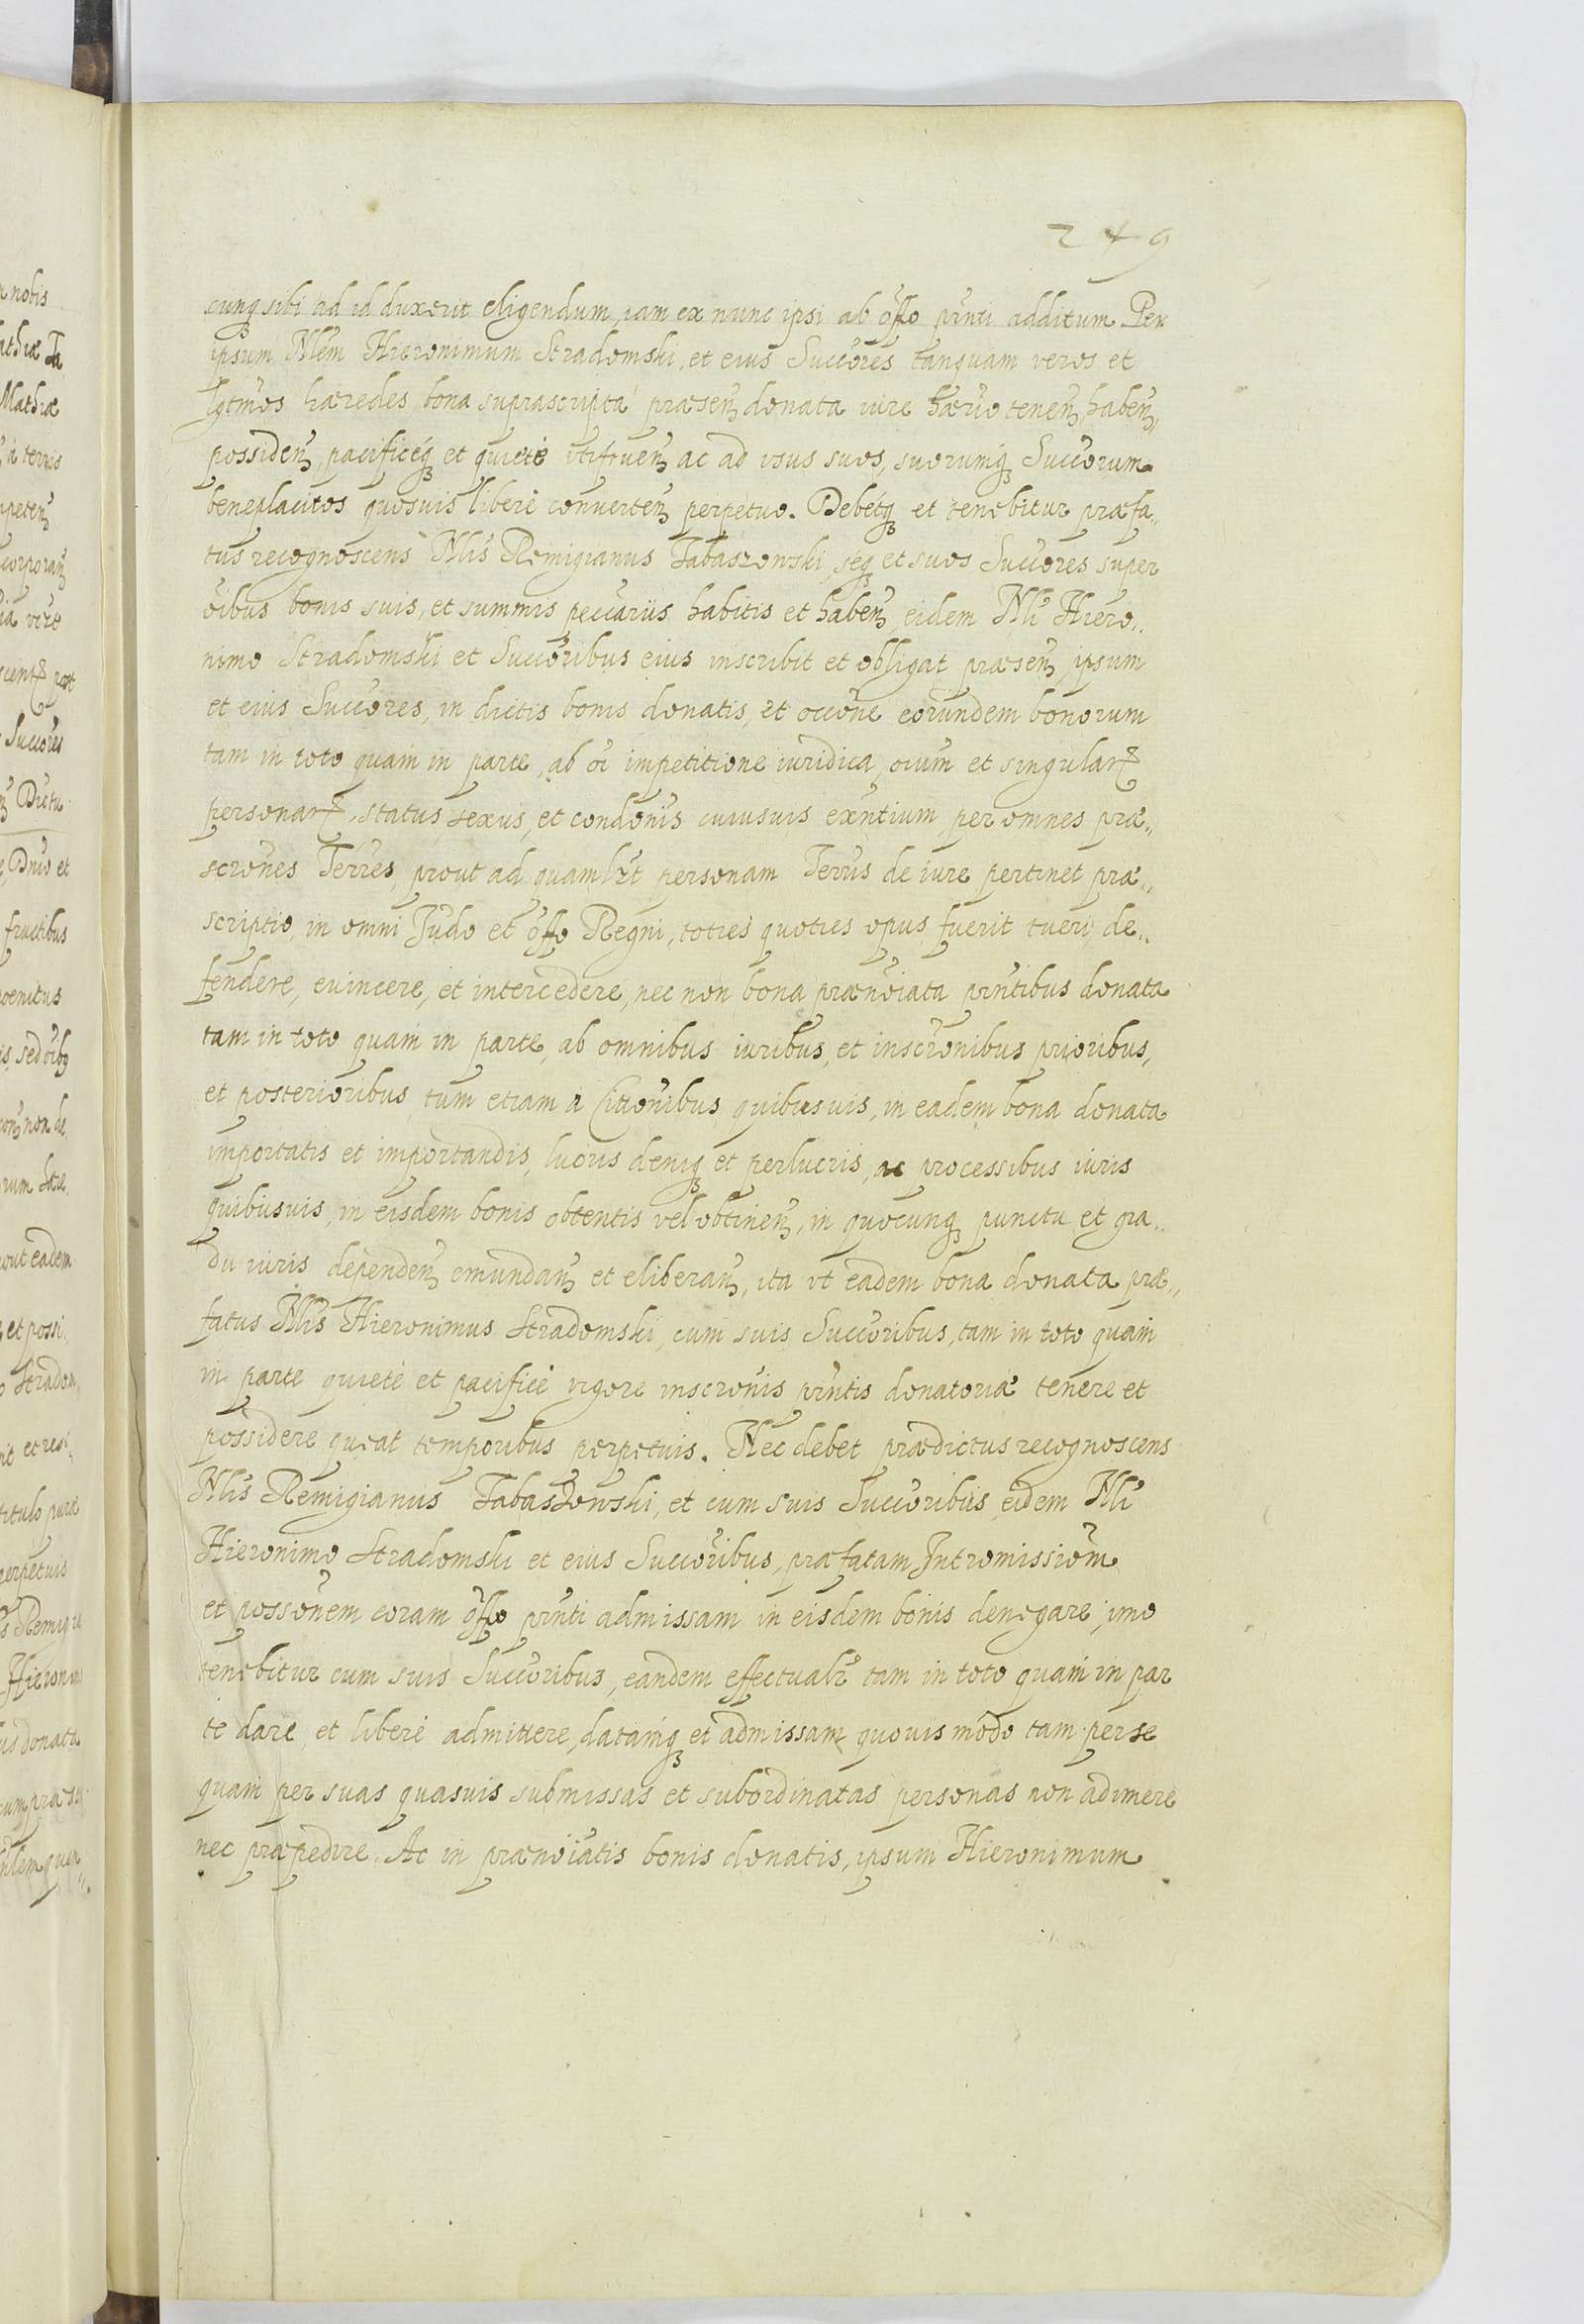 249
cunq sibi ad id duxerit eligendum, iam ex nunc ipsi ab offo pñti additum. Per
ipsum Nlem Hieronimum Stradomski, et eius Succores tanquam veros et
lgtmos hæredes bona suprascripta præsen donata iure hærio tenen, haben,
possiden, pacificéq et quietè utifruen ac ad usus suos, suorumq Succorum
beneplacitos quosuis liberè conuerten perpetuo. Debetq et tenebitur præfa„
tus recognoscens Nlis Remigianus Tabaszowski, seq et suos Succores super
oibus bonis suis, et summis peccariis habitis et haben, eidem Nli Hiero„
nimo Stradomski et Succoribus eius inscribit et obligat præsen, ipsum
et eius Succores, in dictis bonis donatis, et occone eorundem bonorum
tam in toto quam in parte, ab oi impetitione iuridica, oium et singular
personar, status sexus, et condonis cuiusuis exntium per omnes præ„
scrones Terres, prout ad quamlbt personam Terris de iure pertinet præ„
scriptio, in omni Judo et offo Regni, toties quoties opus fuerit tueri, de„
fendere, euincere, et intercedere, nec non bona prænoiata pñtibus donata
tam in toto quam in parte, ab omnibus iuribus, et inscronibus prioribus,
et posterioribus, tum etiam à Citionibus quibusuis, in eadem bona donata
importatis et importandis, lucris deniq et perlucris, ac processibus iuris
quibusuis, in eisdem bonis obtentis vel obtinen, in quocunq punctu et gra„
du iuris dependen emundan et eliberan, ita vt eadem bona donata præ„
fatus Nlis Hieronimus Stradomski, cum suis Succoribus, tam in toto quam
in parte quietè et pacificè vigore inscronis pñtis donatoriæ tenere et
possidere queat temporibus perpetuis. Nec debet prædictus recognoscens
Nlis Remigianus Tabaszowski, et cum suis Succoribus eidem Nli
Hieronimo Stradomski et eius Succoribus, præfatam Intromissiom
et possonem coram offo pñti admissam in eisdem bonis denegare, imo
tenebitur cum suis Succoribus, eandem effectualr tam in toto quam in par
te dare et liberè admittere, datamq et admissam quouis modo tam per se
quam per suas quasuis submissas et subordinatas personas non adimere
nec præpedire. Ac in prænoiatis bonis donatis, ipsum Hieronimum